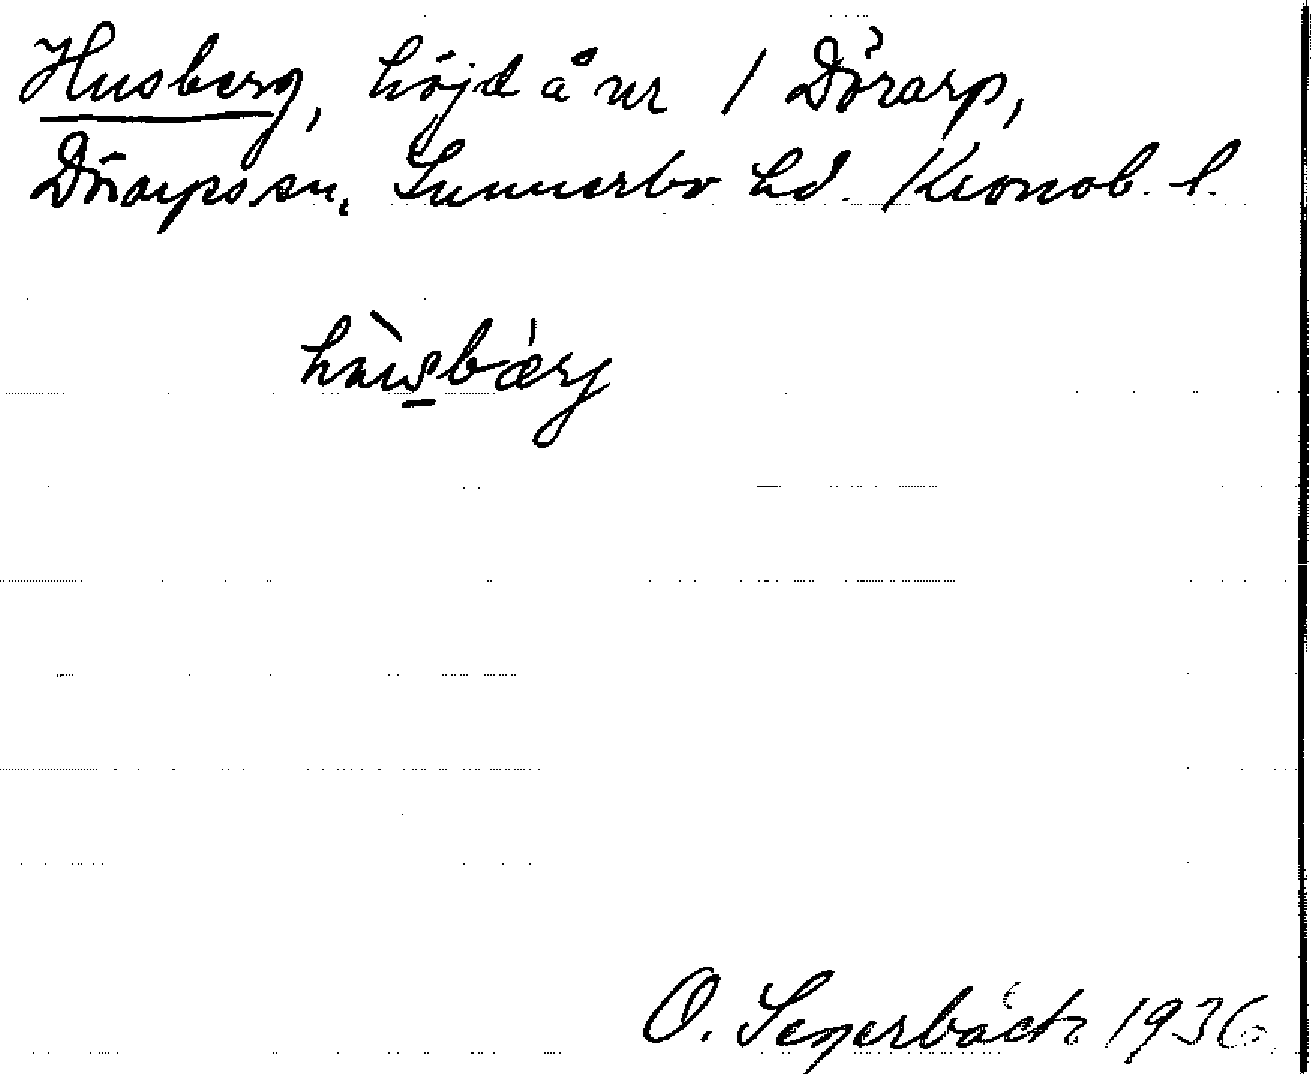 Husberg, höjd å nr 1 Dörarp,
Dörarps sn, Sunnerbo hd. Kronob. l.
hàusbærj
O. Segerbäck 1936